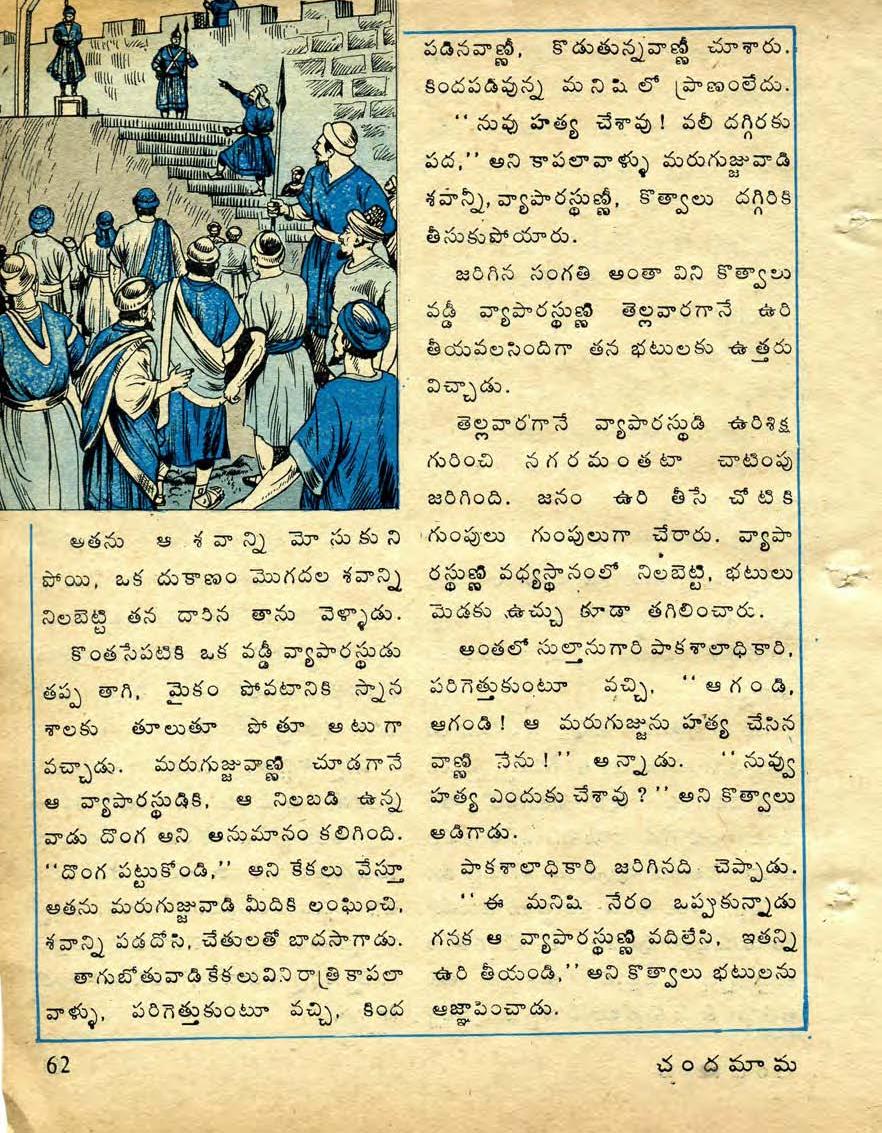 అతను ఆ శవాన్ని మోసుకుని
పోయి, ఒక దుకాణం మొగదల శవాన్ని
నిలబెట్టి తన దారిన తాను వెళ్ళాడు.
కొంతసేపటికి ఒక వడ్డీ వ్యాపారస్థుడు
తప్ప తాగి, మైకం పోవటానికి స్నాన
శాలకు తూలుతూ పోతూ అటుగా
వచ్చాడు. మరుగుజ్జువాణ్ణి చూడగానే
ఆ వ్యాపారస్థుడికి, ఆ నిలబడి ఉన్న
వాడు దొంగ అని అనుమానం కలిగింది.
“దొంగ పట్టుకోండి,” అని కేకలు వేస్తూ
అతను మరుగుజ్జువాడి మీదికి లంఘించి,
శవాన్ని పడదోసి, చేతులతో బాదసాగాడు.
తాగుబోతువాడి కేకలు విని రాత్రి కాపలా
వాళ్ళు, పరిగెత్తుకుంటూ వచ్చి, కింద
పడినవాణ్ణీ, కొడుతున్నవాణ్ణీ చూశారు.
కిందపడివున్న మనిషిలో ప్రాణంలేదు.
“నువు హత్య చేశావు! వలీ దగ్గిరకు
పద,” అని కాపలావాళ్ళు మరుగుజ్జువాడి
శవాన్నీ, వ్యాపారస్థుణ్ణీ, కొత్వాలు దగ్గిరికి
తీసుకుపోయారు.
జరిగిన సంగతి అంతా విని కొత్వాలు
వడ్డీ వ్యాపారస్థుణ్ణి తెల్లవారగానే ఉరి
తీయవలసిందిగా తన భటులకు ఉత్తరు
విచ్చాడు.
తెల్లవారగానే వ్యాపారస్థుడి ఉరిశిక్ష
గురించి నగరమంతటా చాటింపు
జరిగింది. జనం ఉరి తీసే చోటికి
గుంపులు గుంపులుగా చేరారు. వ్యాపా
రస్థుణ్ణి వధ్యస్థానంలో నిలబెట్టి, భటులు
మెడకు ఉచ్చు కూడా తగిలించారు.
అంతలో సుల్తానుగారి పాకశాలాధికారి,
పరిగెత్తుకుంటూ వచ్చి, “ఆగండి,
ఆగండి! ఆ మరుగుజ్జును హత్య చేసిన
వాణ్ణి నేను!” అన్నాడు. “నువ్వు
హత్య ఎందుకు చేశావు?” అని కొత్వాలు
అడిగాడు.
పాకశాలాధికారి జరిగినది చెప్పాడు.
“ఈ మనిషి నేరం ఒప్పుకున్నాడు
గనక ఆ వ్యాపారస్థుణ్ణి వదిలేసి, ఇతన్ని
ఉరి తీయండి,” అని కొత్వాలు భటులను
ఆజ్ఞాపించాడు.
62
చందమామ